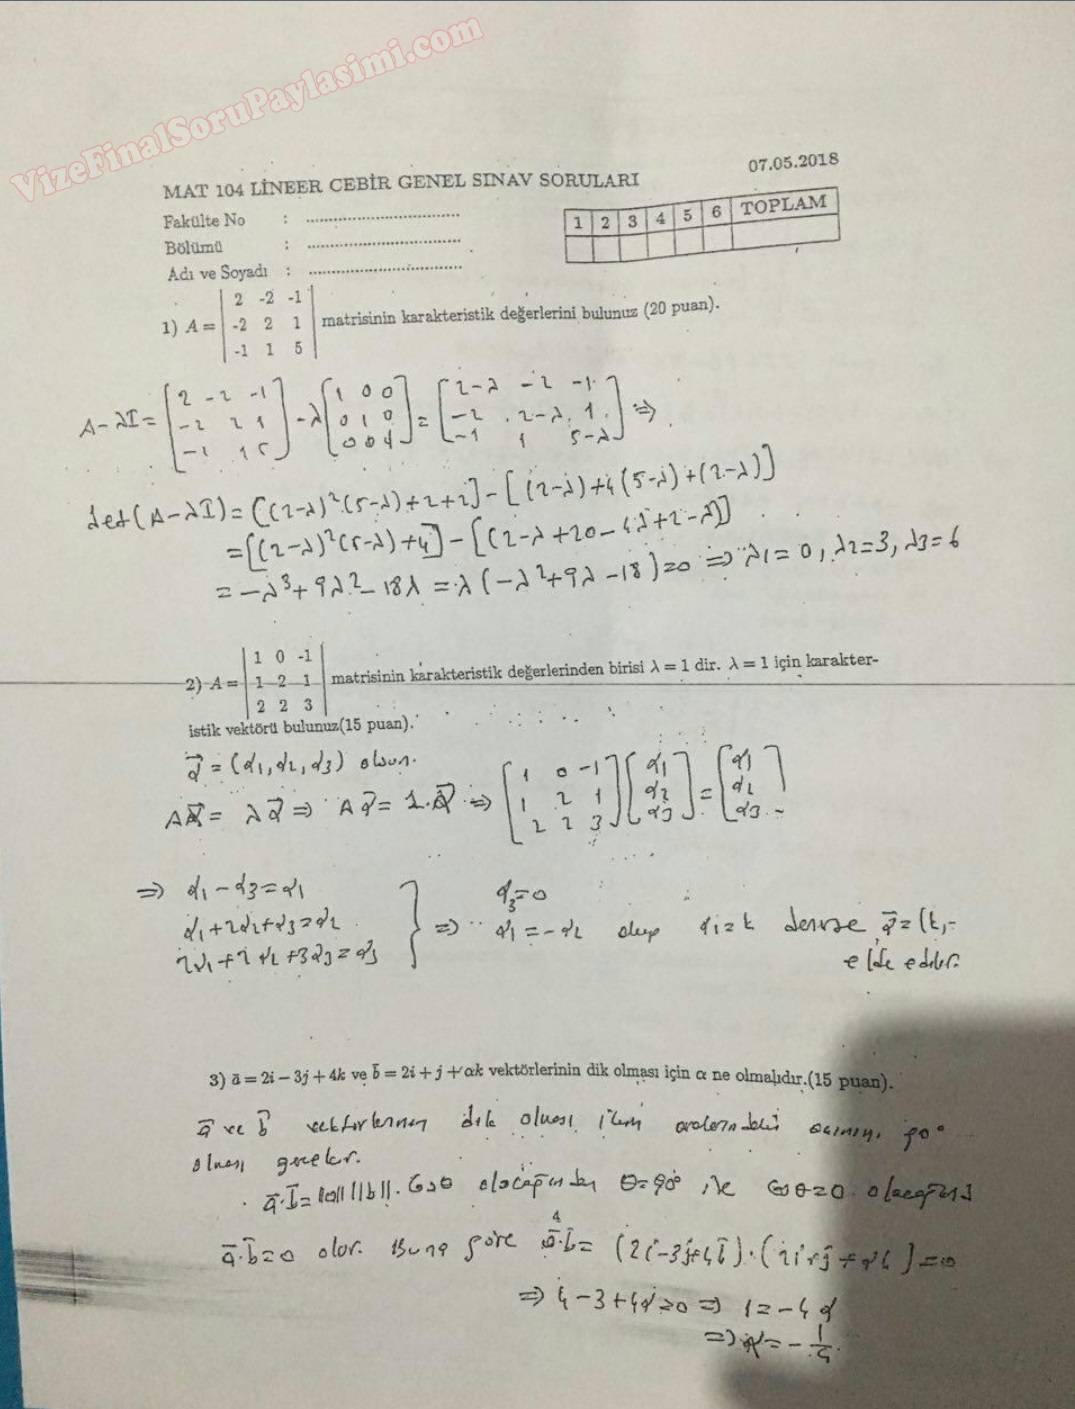 VizeFinalSoruPaylasimi.com
07.05.2018
MAT 104 LİNEER CEBİR GENEL SINAV SORULARI
Fakülte No : ....................................
Bölümü : ....................................
Adı ve Soyadı : ....................................
1 2 3 4 5 6 TOPLAM
2 -2 -1
1) A = -2 2 1 matrisinin karakteristik değerlerini bulunuz (20 puan).
-1 1 5
A-λI = [2 -2 -1; -2 2 1; -1 1 5] - λ[1 0 0; 0 1 0; 0 0 1] = [2-λ -2 -1; -2 2-λ 1; -1 1 5-λ] ⇒
det(A-λI) = [(2-λ)²(5-λ)+2+2] - [(2-λ)+4(5-λ)+(2-λ)]
= [(2-λ)²(5-λ)+4] - [(2-λ+20-4λ+2-λ)]
= -λ³+9λ²-18λ = λ(-λ²+9λ-18)=0 ⇒ λ1=0, λ2=3, λ3=6
1 0 -1
2) A = 1 2 1 matrisinin karakteristik değerlerinden birisi λ = 1 dir. λ = 1 için karakter-
2 2 3
istik vektörü bulunuz(15 puan).
= (α1, α2, α3) olsun.
⇒ [1 0 -1; 1 2 1; 2 2 3] [α1; α2; α3] = [α1; α2; α3]
⇒ α1 - α3 = α1
α1 + 2α2 + α3 = α2
2α1 + 2α2 + 3α3 = α3
⇒ α3 = 0
α1 = -α2 olup α1 = k denirse = (k, -
elde edilir.
3) ā = 2i − 3j + 4k ve b̄ = 2i + j + αk vektörlerinin dik olması için α ne olmalıdır.(15 puan).
ā ve b̄ vektörlerinin dik olması için aralarındaki açının 90°
olması gerekir.
ā·b̄ = ||a|| ||b||. Cosθ olacağından θ=90° ise cosθ=0 olacağından
4
ā·b̄=0 olur. Buna göre ā·b̄ = (2i-3j+4k)·(2i+j+αk)=0
⇒ 4-3+4α=0 ⇒ 1=-4α
⇒ α = -1/4